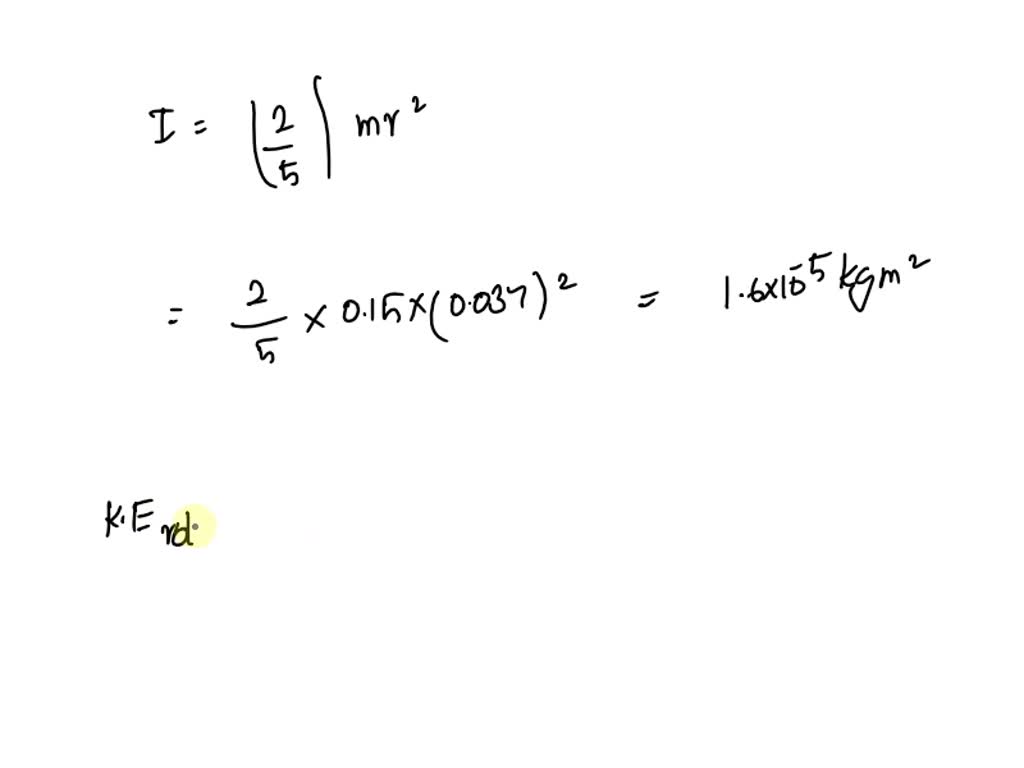 I = (2/5) mr²
= 2/5 × 0.15×(0.037)² = 1.6×10⁻⁵ kgm²
K.E rd